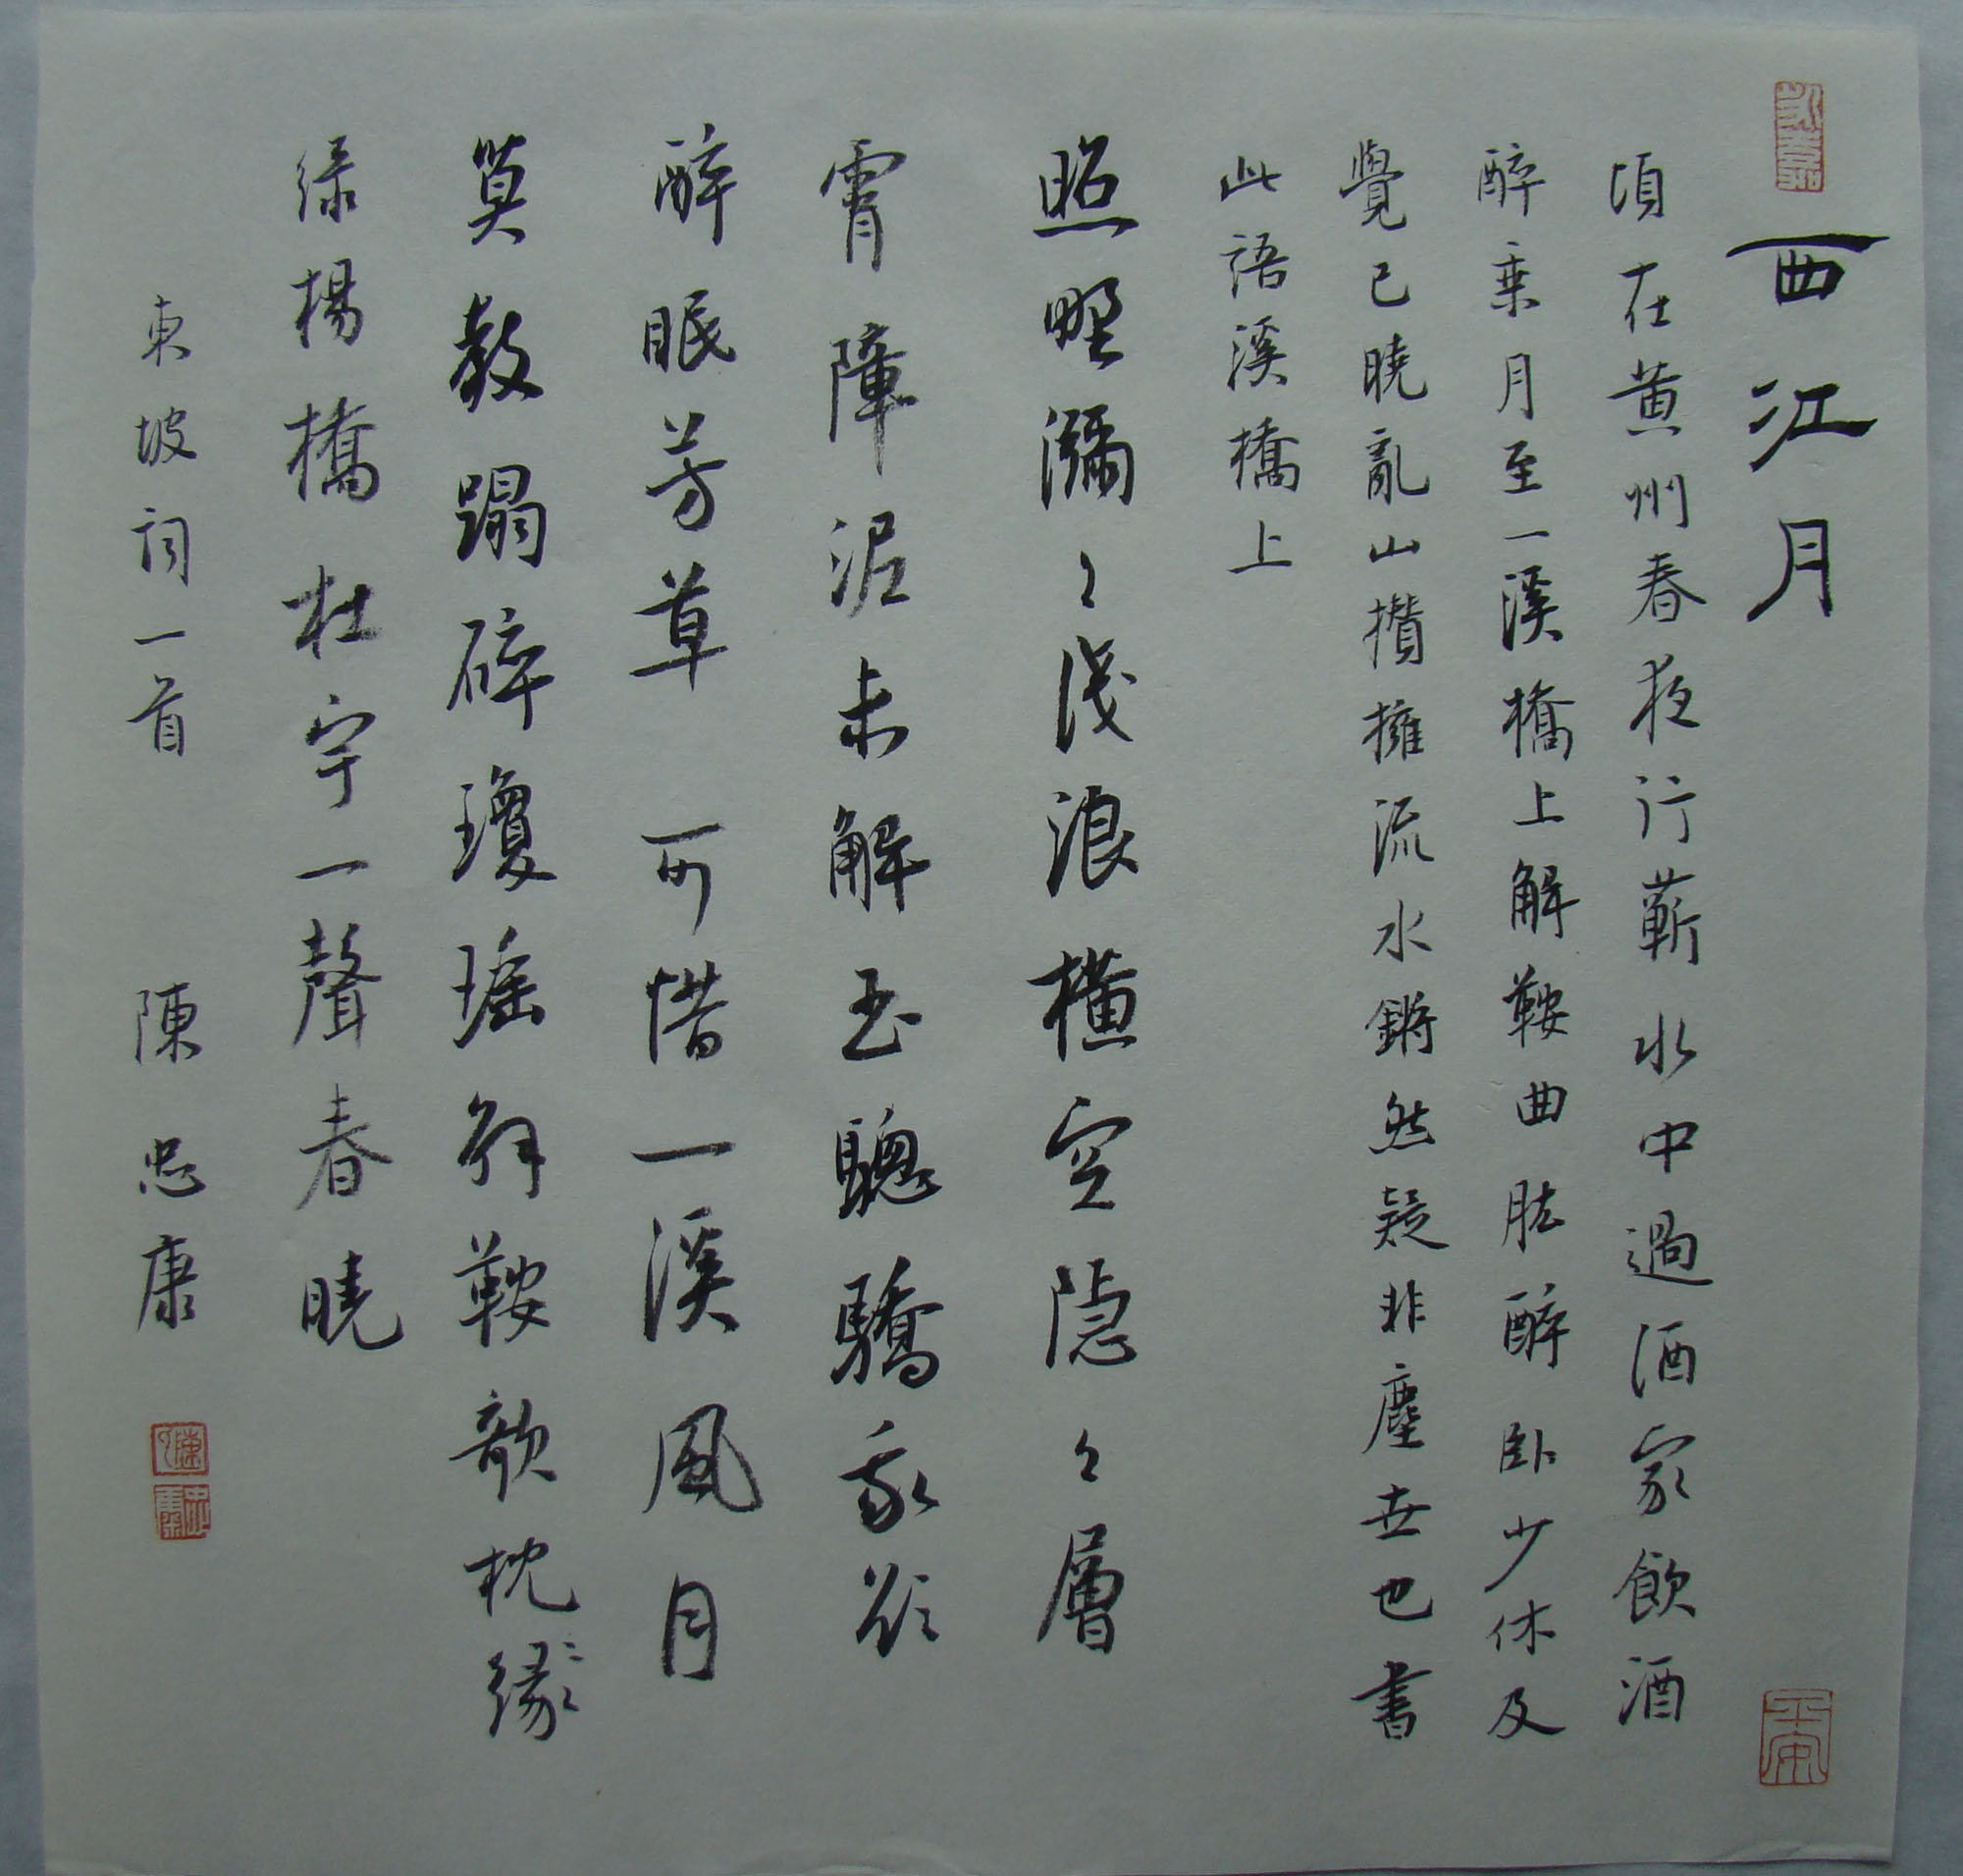 永嘉
西江月
頃在黄州春夜行蘄水中過酒家飲酒
醉乗月至一溪橋上解鞍曲肱醉卧少休及
覺已曉亂山攢擁流水鏘然疑非塵世也書
此語溪橋上
照野瀰〻淺浪橫空隱〻層
霄障泥未解玉驄驕我欲
醉眠芳草 可惜一溪風月
莫教蹋碎瓊瑤解鞍欹枕緣
绿楊橋杜宇一聲春曉
東坡詞一首 陳忠康
忠康
平安